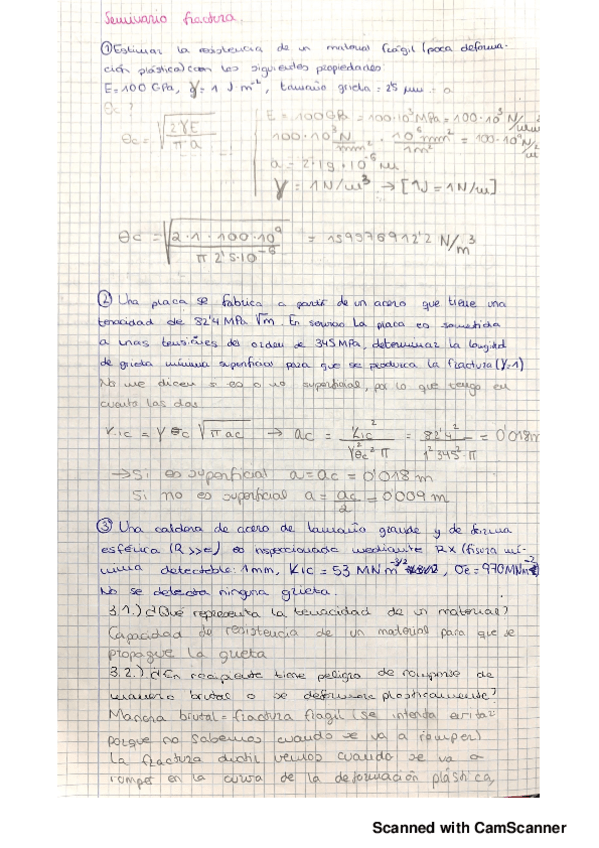 Seminario fractura.
① Estimar la resistencia de un material frágil (poca deforma-
ción plástica) con las siguientes propiedades:
E=100 GPa, γ=1 J·m⁻², tamaño grieta = 2'5 μm = a
σc ?
σc = √(2γE / π a)
E = 100 GPa = 100·10³ MPa = 100·10³ N/mm²
100·10³ N/mm² · 10⁶ mm²/1m² = 100·10⁹ N/m²
a = 2'5·10⁻⁶ m
γ = 1 N/m³ → [1J = 1N/m]
σc = √(2·1·100·10⁹ / π 2'5·10⁻⁶) = 159576912'2 N/m³
② Una placa se fabrica a partir de un acero que tiene una
tenacidad de 82'4 MPa √m. En servicio la placa es sometida
a unas tensiones de orden de 345 MPa, determinar la longitud
de grieta mínima superficial para que se produzca la fractura (Y=1)
No me dicen si es o no superficial, por lo que tengo en
cuenta las dos
KIC = Y σc √(π ac) → ac = KIC² / Y² σc² π = 82'4² / 1² 345² · π = 0'018m
→ Si es superficial a = ac = 0'018 m
Si no es superficial a = ac/2 = 0'009 m
③ Una caldera de acero de tamaño grande y de forma
esférica (R>>e) es inspeccionada mediante RX (fisura mí-
nima detectable: 1mm, KIC = 53 MN m⁻³/², σe = 970 MN m⁻²)
No se detecta ninguna grieta.
3.1.) ¿Qué representa la tenacidad de un material?
Capacidad de resistencia de un material para que se
propague la grieta
3.2.) ¿En recipiente tiene peligro de romperse de
manera brutal o se deformará plásticamente?
Manera brutal = fractura frágil (se intenta evitar
porque no sabemos cuando se va a romper)
La fractura dúctil vemos cuando se va a
romper en la curva de la deformación plástica,
Scanned with CamScanner